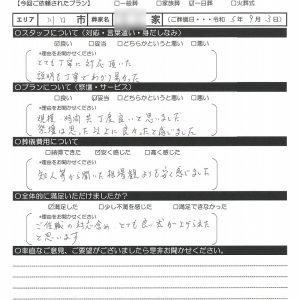 【今回ご依頼されたプラン】 □一般葬 □家族葬 ☑一日葬 □火葬式
エリア 川口 市 葬家名 家 (ご葬儀日・・・令和 5年 9月 3日)
○スタッフについて（対応・言葉遣い・身だしなみ）
☑良い □妥当 □どちらかというと悪い □悪い
*理由をお聞かせください
とても丁寧に対応頂いた
説明も丁寧でわかり易かった
○プランについて（祭壇・サービス）
□良い ☑妥当 □どちらかというと悪い □悪い
*理由をお聞かせください
規模・時間共丁度良いと思いました
祭壇は思った以上に良かったと思いました
○葬儀費用について
□納得できた ☑安く感じた □高く感じた
*理由をお聞かせください
知人等から聞いた相場観よりも安く感じました
○全体的に満足いただけましたか？
☑満足した □少し不満を感じた □満足できなかった
*理由をお聞かせください
ご住職の対応含め とても良い式が上げられた
と思います
○率直なご意見、ご要望がございましたら是非お聞かせください。